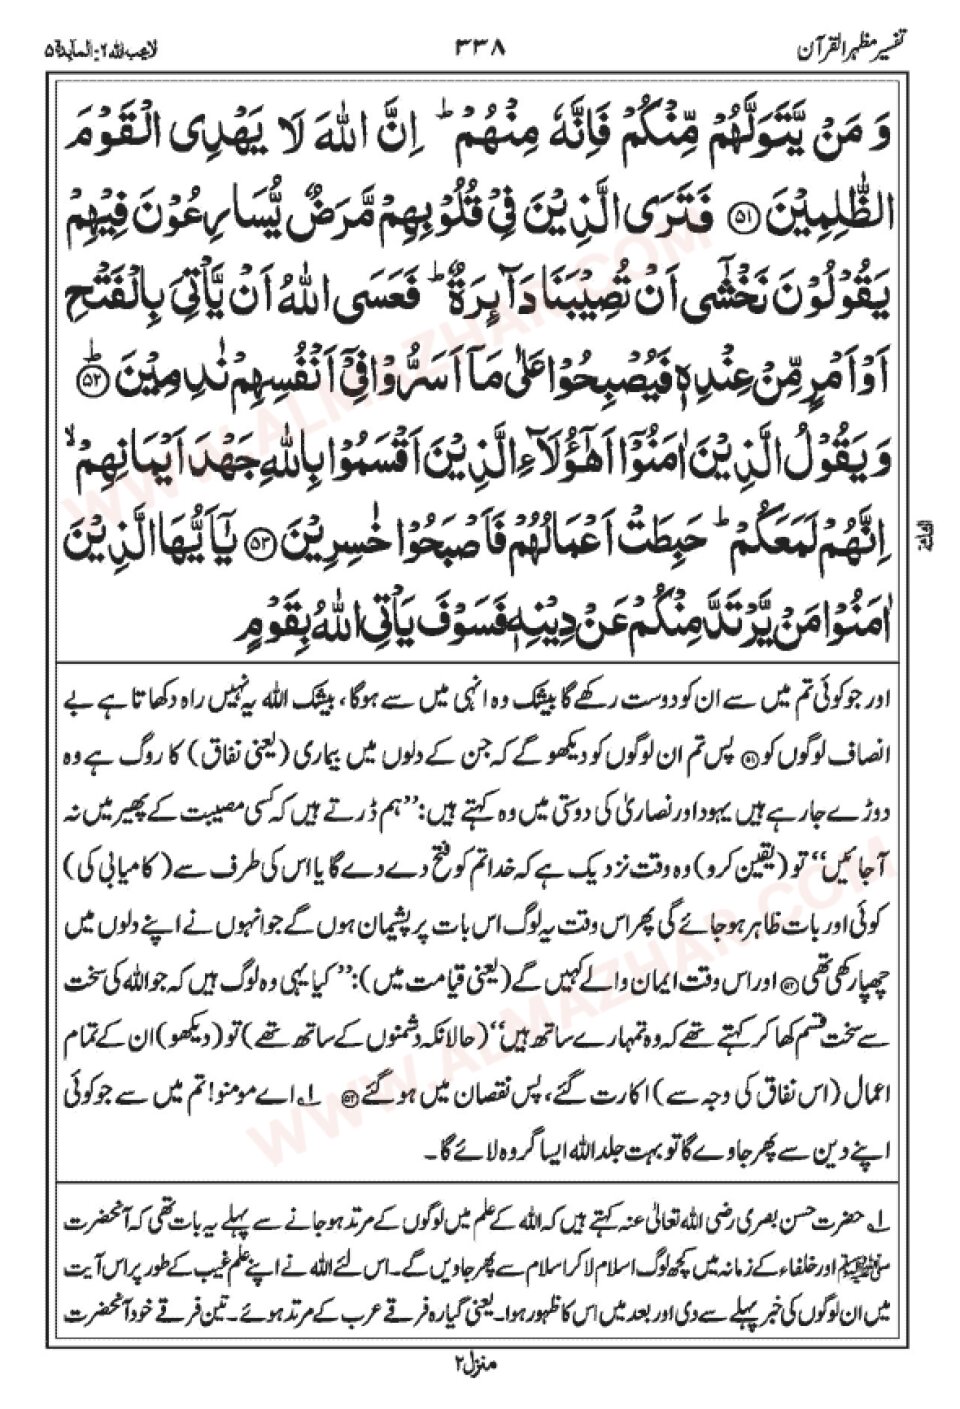 تفسیر مظہر القرآن
۳۳۸
لا یحب اللہ ۶: المآیدۃ ۵
وَ مَنْ یَّتَوَلَّهُمْ مِّنْكُمْ فَاِنَّهٗ مِنْهُمْ ؕ اِنَّ اللّٰهَ لَا یَهْدِی الْقَوْمَ
الظّٰلِمِیْنَ ۝۵۱ فَتَرَی الَّذِیْنَ فِیْ قُلُوْبِهِمْ مَّرَضٌ یُّسَارِعُوْنَ فِیْهِمْ
یَقُوْلُوْنَ نَخْشٰۤی اَنْ تُصِیْبَنَا دَآىِٕرَةٌ ؕ فَعَسَی اللّٰهُ اَنْ یَّاْتِیَ بِالْفَتْحِ
اَوْ اَمْرٍ مِّنْ عِنْدِهٖ فَیُصْبِحُوْا عَلٰی مَاۤ اَسَرُّوْا فِیْۤ اَنْفُسِهِمْ نٰدِمِیْنَ ؕ۝۵۲
وَ یَقُوْلُ الَّذِیْنَ اٰمَنُوْۤا اَهٰۤؤُلَآءِ الَّذِیْنَ اَقْسَمُوْا بِاللّٰهِ جَهْدَ اَیْمَانِهِمْ ۙ
اِنَّهُمْ لَمَعَكُمْ ؕ حَبِطَتْ اَعْمَالُهُمْ فَاَصْبَحُوْا خٰسِرِیْنَ ۝۵۳ یٰۤاَیُّهَا الَّذِیْنَ
اٰمَنُوْا مَنْ یَّرْتَدَّ مِنْكُمْ عَنْ دِیْنِهٖ فَسَوْفَ یَاْتِی اللّٰهُ بِقَوْمٍ
الثلثة
اور جو کوئی تم میں سے ان کو دوست رکھے گا بیشک وہ انہی میں سے ہوگا، بیشک اللہ یہ نہیں راہ دکھاتا ہے بے
انصاف لوگوں کو ۵۱ پس تم ان لوگوں کو دیکھو گے کہ جن کے دلوں میں بیماری (یعنی نفاق) کا روگ ہے وہ
دوڑے جارہے ہیں یہود اور نصاریٰ کی دوستی میں وہ کہتے ہیں: ’’ہم ڈرتے ہیں کہ کسی مصیبت کے پھیر میں نہ
آجائیں‘‘ تو (یقین کرو) وہ وقت نزدیک ہے کہ خدا تم کو فتح دے دے گا یا اس کی طرف سے (کامیابی کی)
کوئی اور بات ظاہر ہوجائے گی پھر اس وقت یہ لوگ اس بات پر پشیمان ہوں گے جو انہوں نے اپنے دلوں میں
چھپا رکھی تھی ۵۲ اور اس وقت ایمان والے کہیں گے (یعنی قیامت میں): ’’کیا یہی وہ لوگ ہیں کہ جو اللہ کی سخت
سے سخت قسم کھا کر کہتے تھے کہ وہ تمہارے ساتھ ہیں‘‘ (حالانکہ دشمنوں کے ساتھ تھے) تو (دیکھو) ان کے تمام
اعمال (اس نفاق کی وجہ سے) اکارت گئے، پس نقصان میں ہوگئے ۵۳ ۱؎ اے مومنو! تم میں سے جو کوئی
اپنے دین سے پھر جاوے گا تو بہت جلد اللہ ایسا گروہ لائے گا۔
۱؎ حضرت حسن بصری رضی اللہ تعالیٰ عنہ کہتے ہیں کہ اللہ کے علم میں لوگوں کے مرتد ہوجانے سے پہلے یہ بات تھی کہ آنحضرت
ﷺ اور خلفاء کے زمانہ میں کچھ لوگ اسلام لاکر اسلام سے پھر جاویں گے۔ اس لئے اللہ نے اپنے علم غیب کے طور پر اس آیت
میں ان لوگوں کی خبر پہلے سے دی اور بعد میں اس کا ظہور ہوا۔ یعنی گیارہ فرقے عرب کے مرتد ہوئے۔ تین فرقے خود آنحضرت
منزل ۲
WWW.ALMAZHAR.COM
WWW.ALMAZHAR.COM